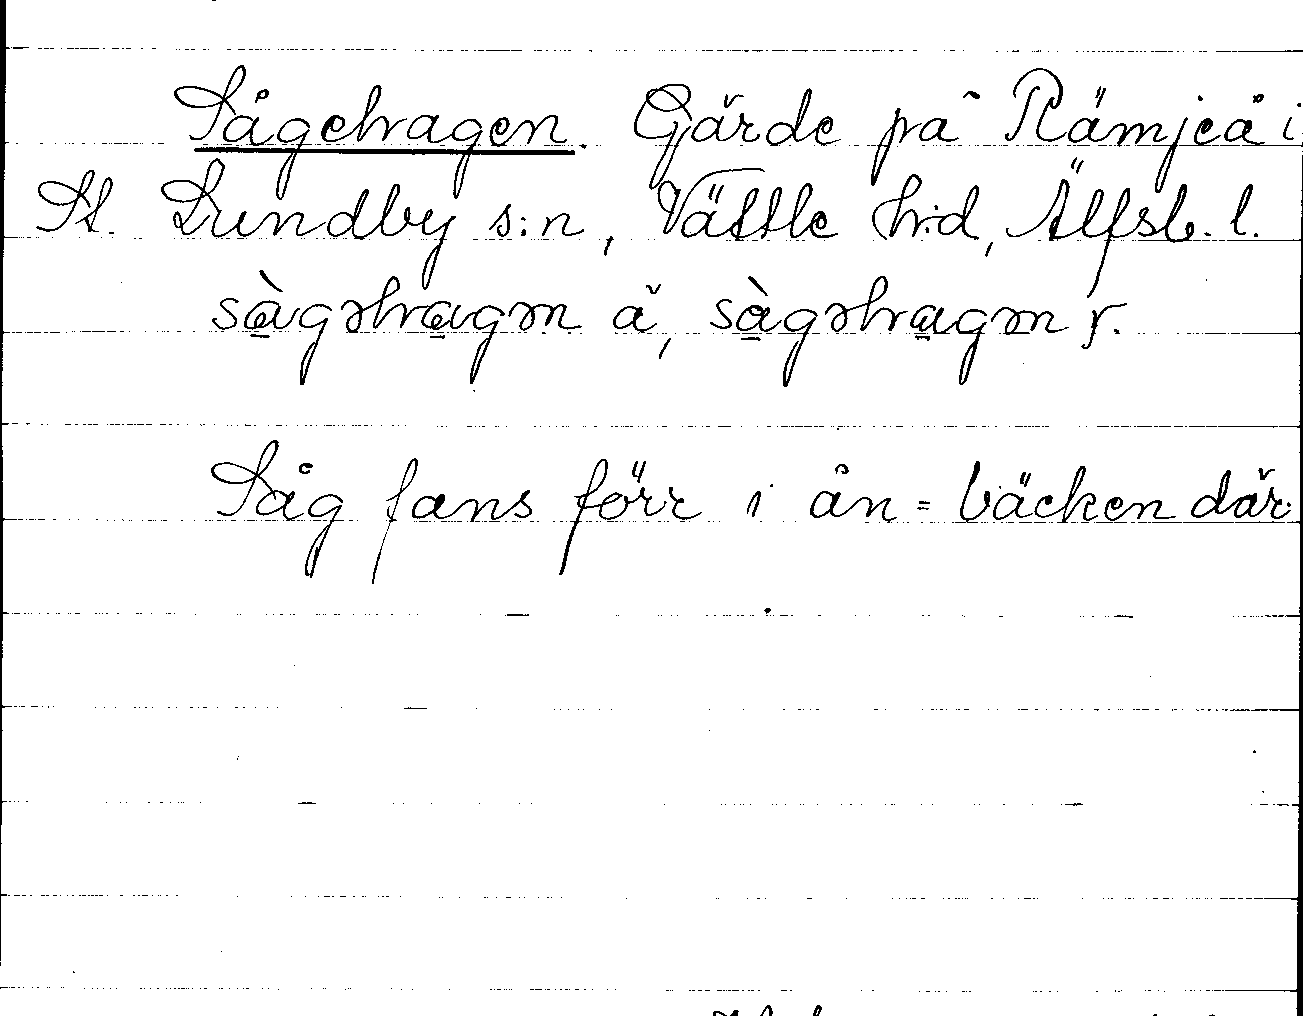 Sågehagen. Gärde på Rämjeå i
St. Lundby s:n, Vättle h:d, Älfsb. l.
Såg fans förr i ån = bäcken där